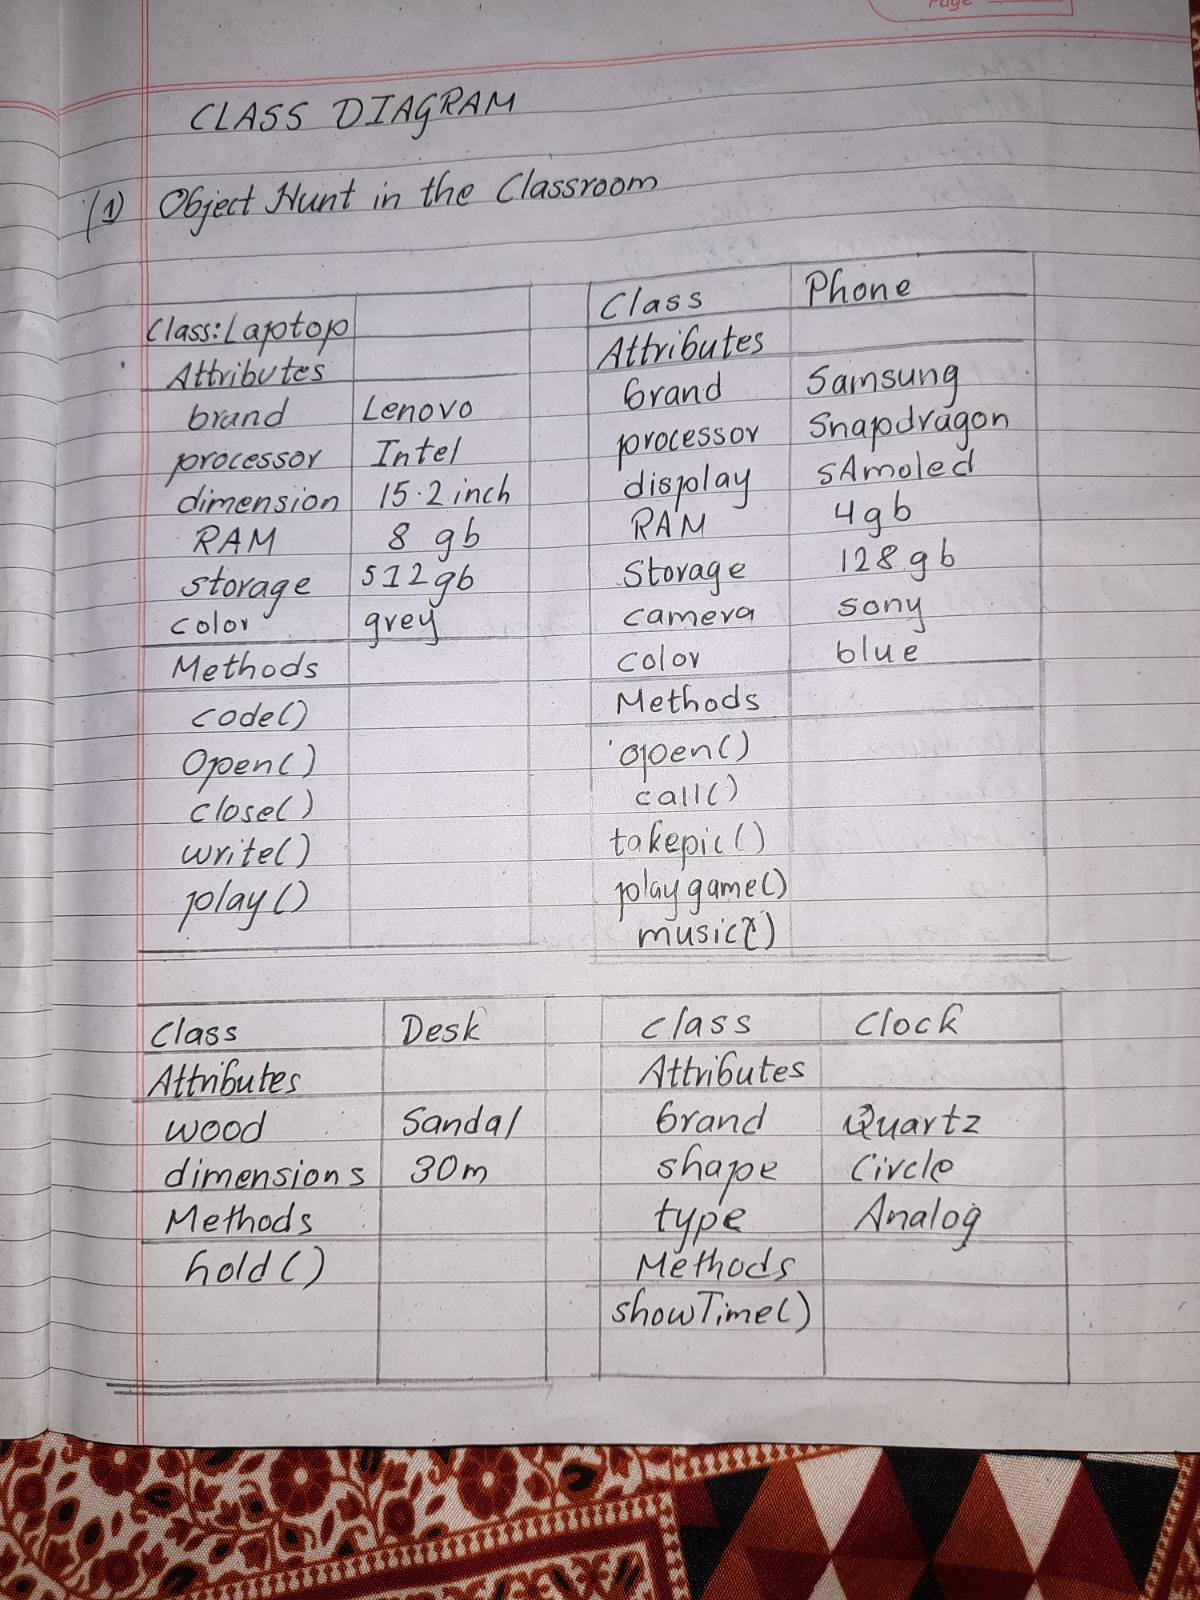 Page
CLASS DIAGRAM
(1) Object Hunt in the Classroom
Class: Laptop
Attributes
brand Lenovo
processor Intel
dimension 15.2 inch
RAM 8 gb
storage 512gb
color grey
Methods
code()
Open()
close()
write()
play()
Class Phone
Attributes
brand Samsung
processor Snapdragon
display sAmoled
RAM 4gb
Storage 128gb
camera sony
color blue
Methods
open()
call()
takepic()
playgame()
music()
Class Desk
Attributes
wood Sandal
dimensions 30m
Methods
hold()
class Clock
Attributes
brand Quartz
shape Circle
type Analog
Methods
showTime()